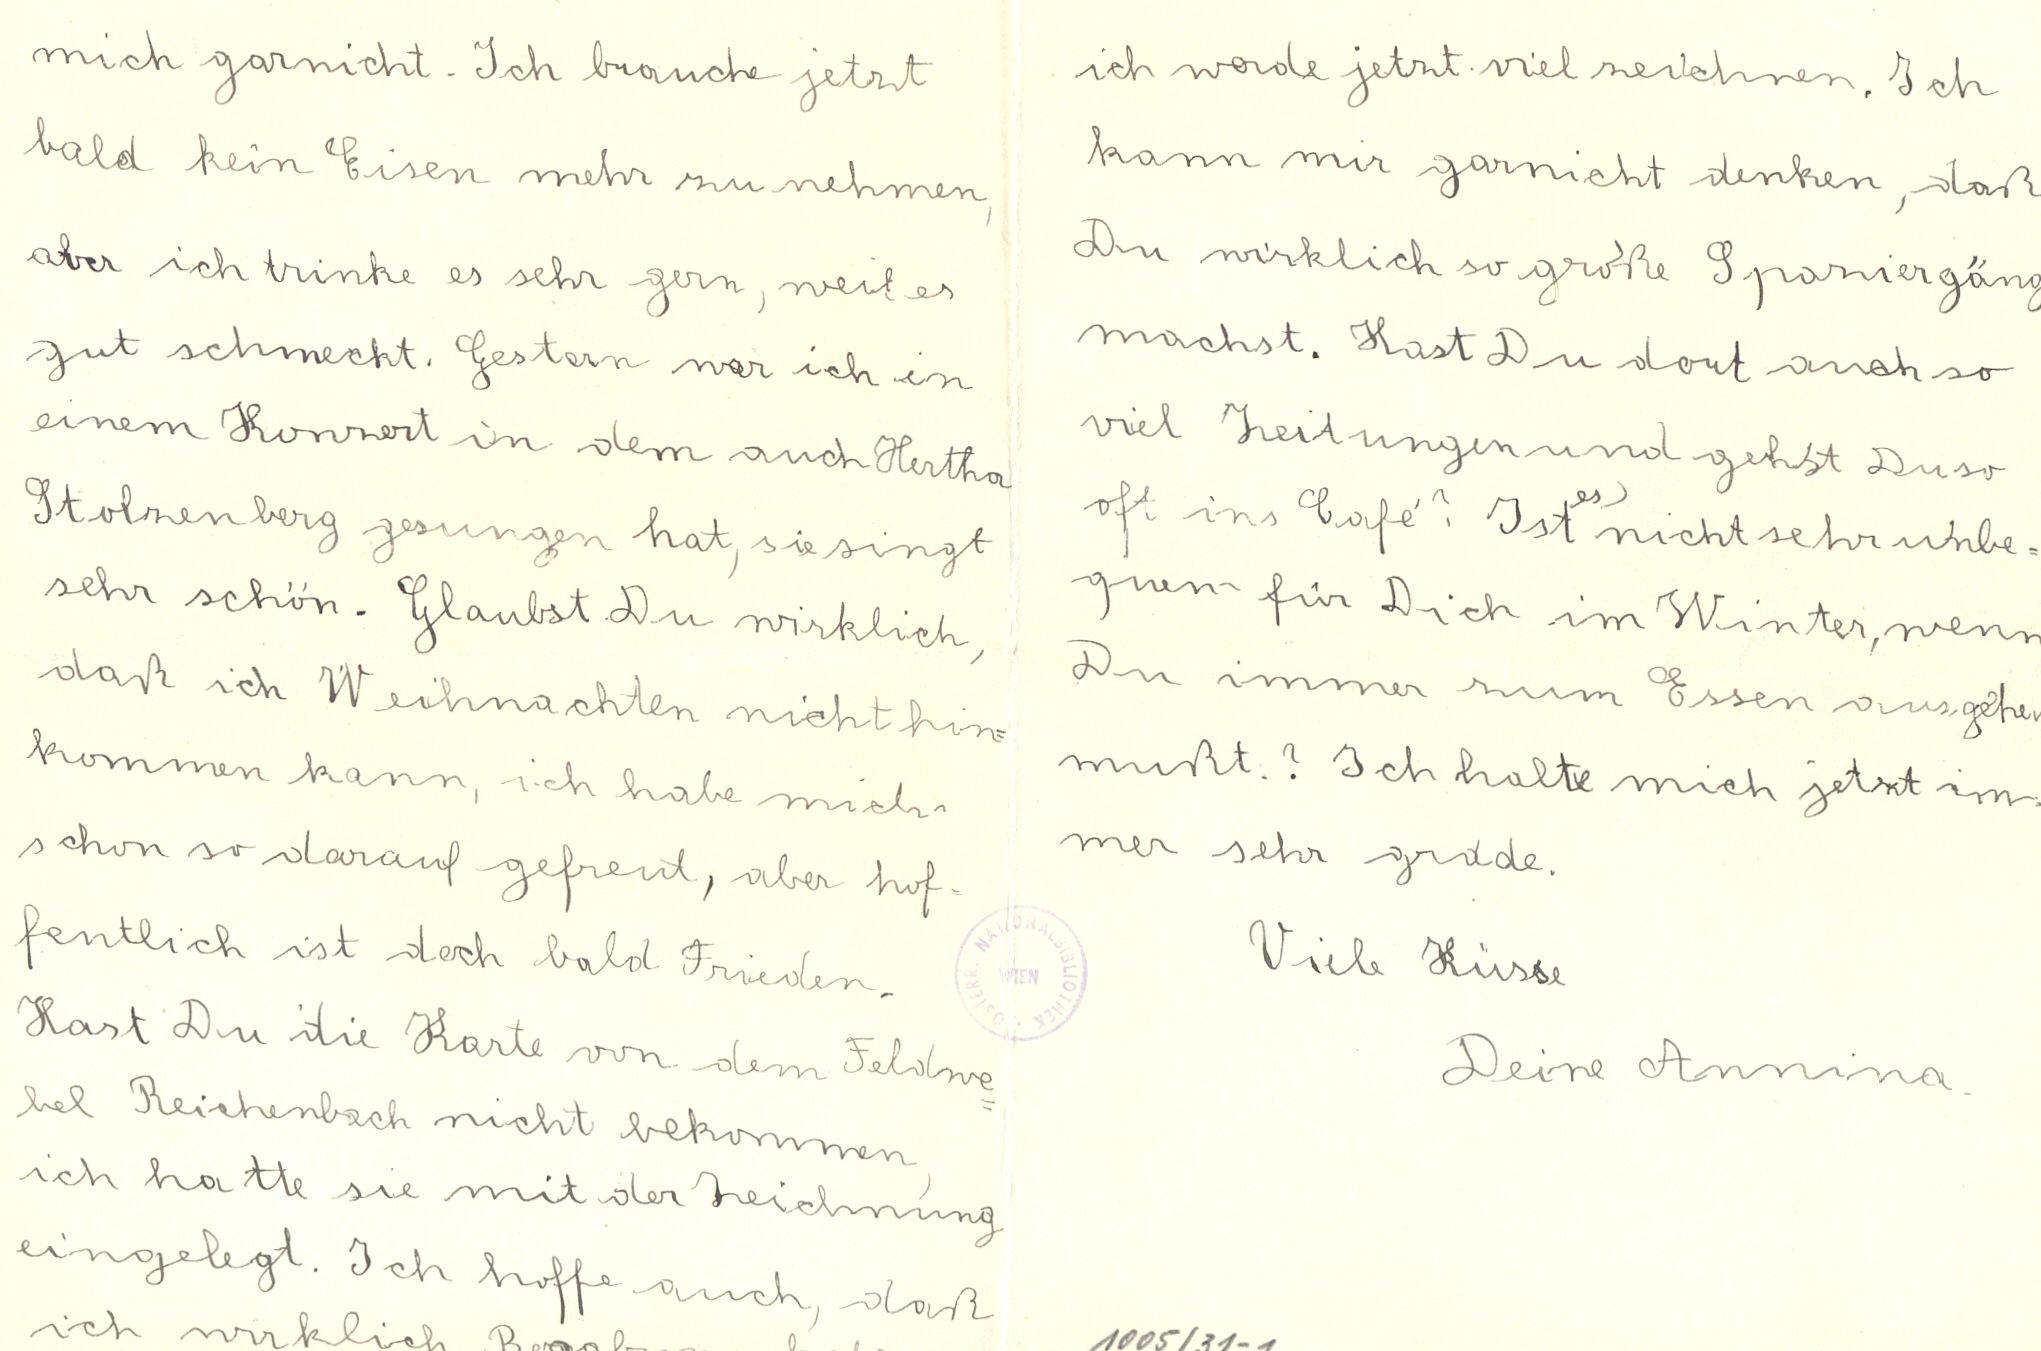 mich garnicht. Ich brauche jetzt
bald kein Eisen mehr zu nehmen,
aber ich trinke es sehr gern, weil es
gut schmeckt. Gestern war ich in
einem Konzert in dem auch Hertha
Stolzenberg gesungen hat, sie singt
sehr schön. Glaubst Du wirklich,
daß ich Weihnachten nicht hin=
kommen kann, ich habe mich
schon so darauf gefreut, aber hof=
fentlich ist doch bald Frieden.
Hast Du die Karte von dem Feldwe=
bel Reichenbach nicht bekommen,
ich hatte sie mit der Zeichnung
eingelegt. Ich hoffe auch, daß
ich wirklich
ich werde jetzt viel zeichnen. Ich
kann mir garnicht denken, daß
Du wirklich so große Spaziergäng
machst. Hast Du dort auch so
viel Zeitungen und gehst Du so
oft ins Café? Ist es nicht sehr unbe=
quem für Dich im Winter, wenn
Du immer zum Essen ausgehen
mußt.? Ich halte mich jetzt im=
mer sehr grade.
Viele Küsse
Deine Annina.
ÖSTERR. NATIONALBIBLIOTHEK
WIEN
1005/31-1